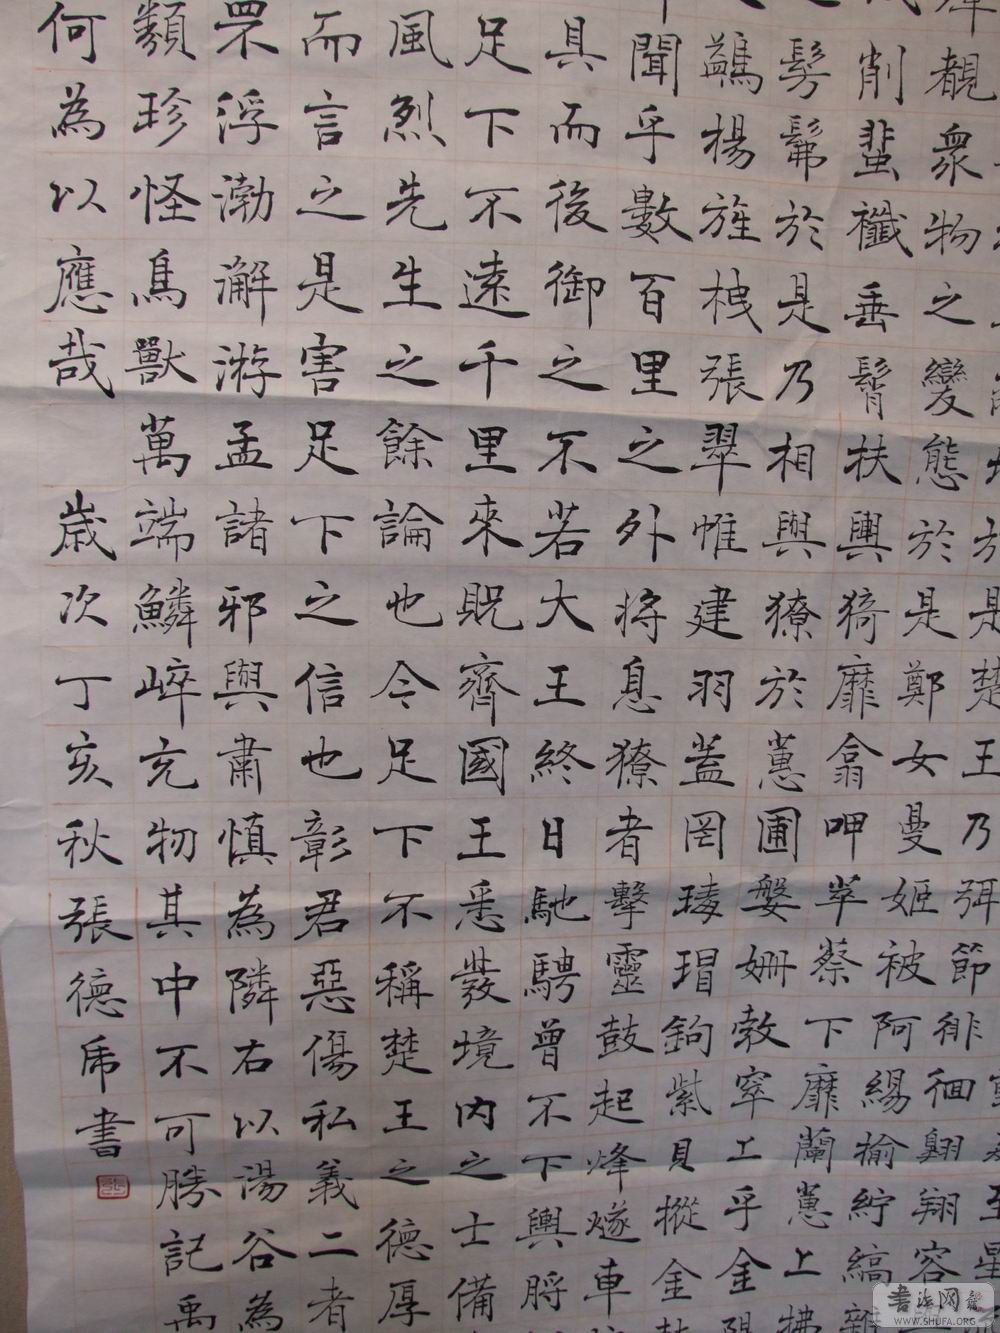 於是楚王乃弭節徘徊翱翔容
覩衆物之變態於是鄭女曼姬被阿緆揄紵縞雜
削蜚襳垂髾扶輿猗靡翕呷萃蔡下靡蘭蕙上拂
髣髴於是乃相與獠於蕙圃媻姍勃窣工乎金隄
鷁楊旌栧張翠帷建羽蓋罔瑇瑁鉤紫貝摐金鼓
聞乎數百里之外將息獠者擊靈鼓起烽燧車
具而後御之不若大王終日馳騁曾不下輿脟
足下不遠千里來貺齊國王悉發境内之士備
風烈先生之餘論也今足下不稱楚王之德厚
而言之是害足下之信也彰君惡傷私義二者
罘浮渤澥游孟諸邪與肅慎為隣右以湯谷為
類珍怪鳥獸萬端鱗崪充物其中不可勝記禹
何為以應哉 歲次丁亥秋張德虎書
书法网
WWW.SHUFA.ORG